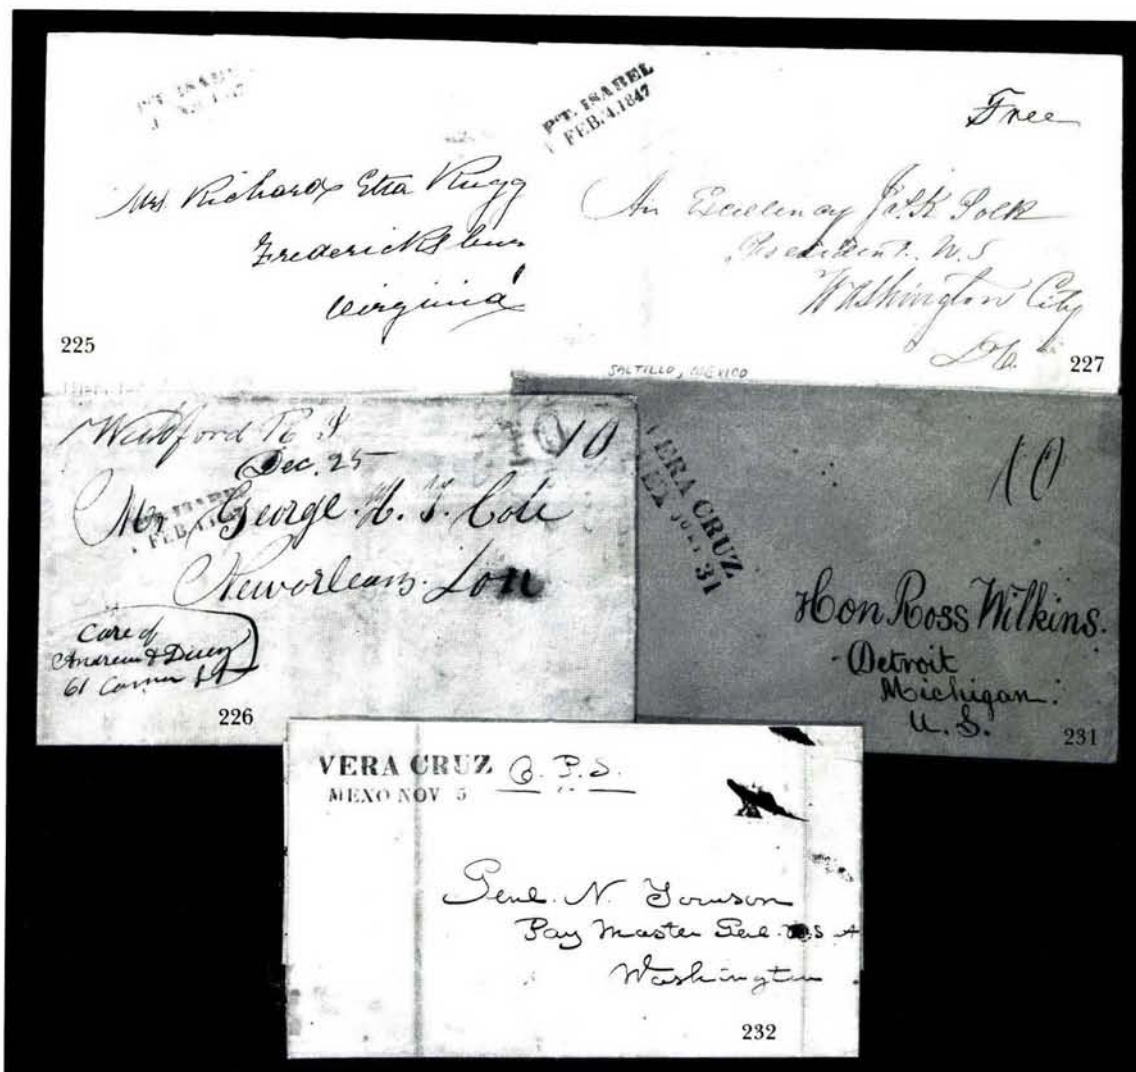 PT. ISABEL
Mrs. Richard Etta Rugg
Fredericksbur
Virginia
225
PT. ISABEL
FEB. 4. 1847
Free
Excellency Jas. K Polk
President. U. S
Washington City
D.C.
227
SALTILLO, MEXICO
Wickford R I
Dec. 25
10
PT. ISABEL
FEB. 4.
Mr George. H. T. Cole
Neworleans. Lou
Care of
Andrew & Dewy
61 St
226
VERA CRUZ
MEX JULY 31
10
Hon Ross Wilkins.
Detroit
Michigan.
U. S.
231
VERA CRUZ
MEXO NOV 5
O. P. S.
Genl. N. Towson
Pay Master Genl. U.S A
Washington
232